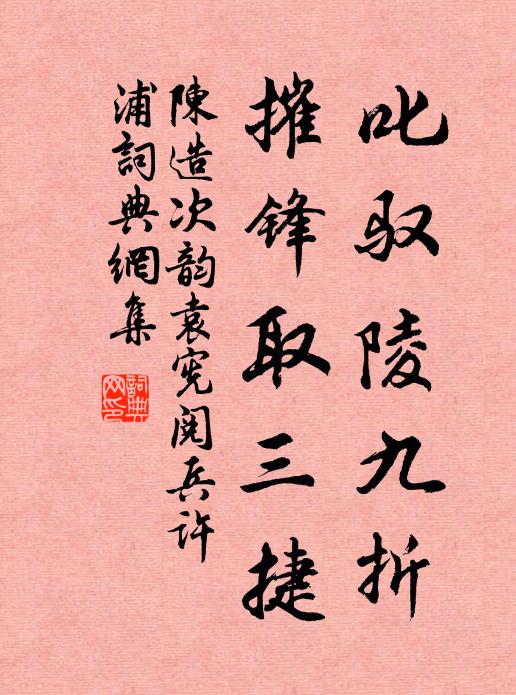 叱驭陵九折
摧锋取三捷
陳造次韵袁宪阅兵许
浦詞典網集
詞典網印